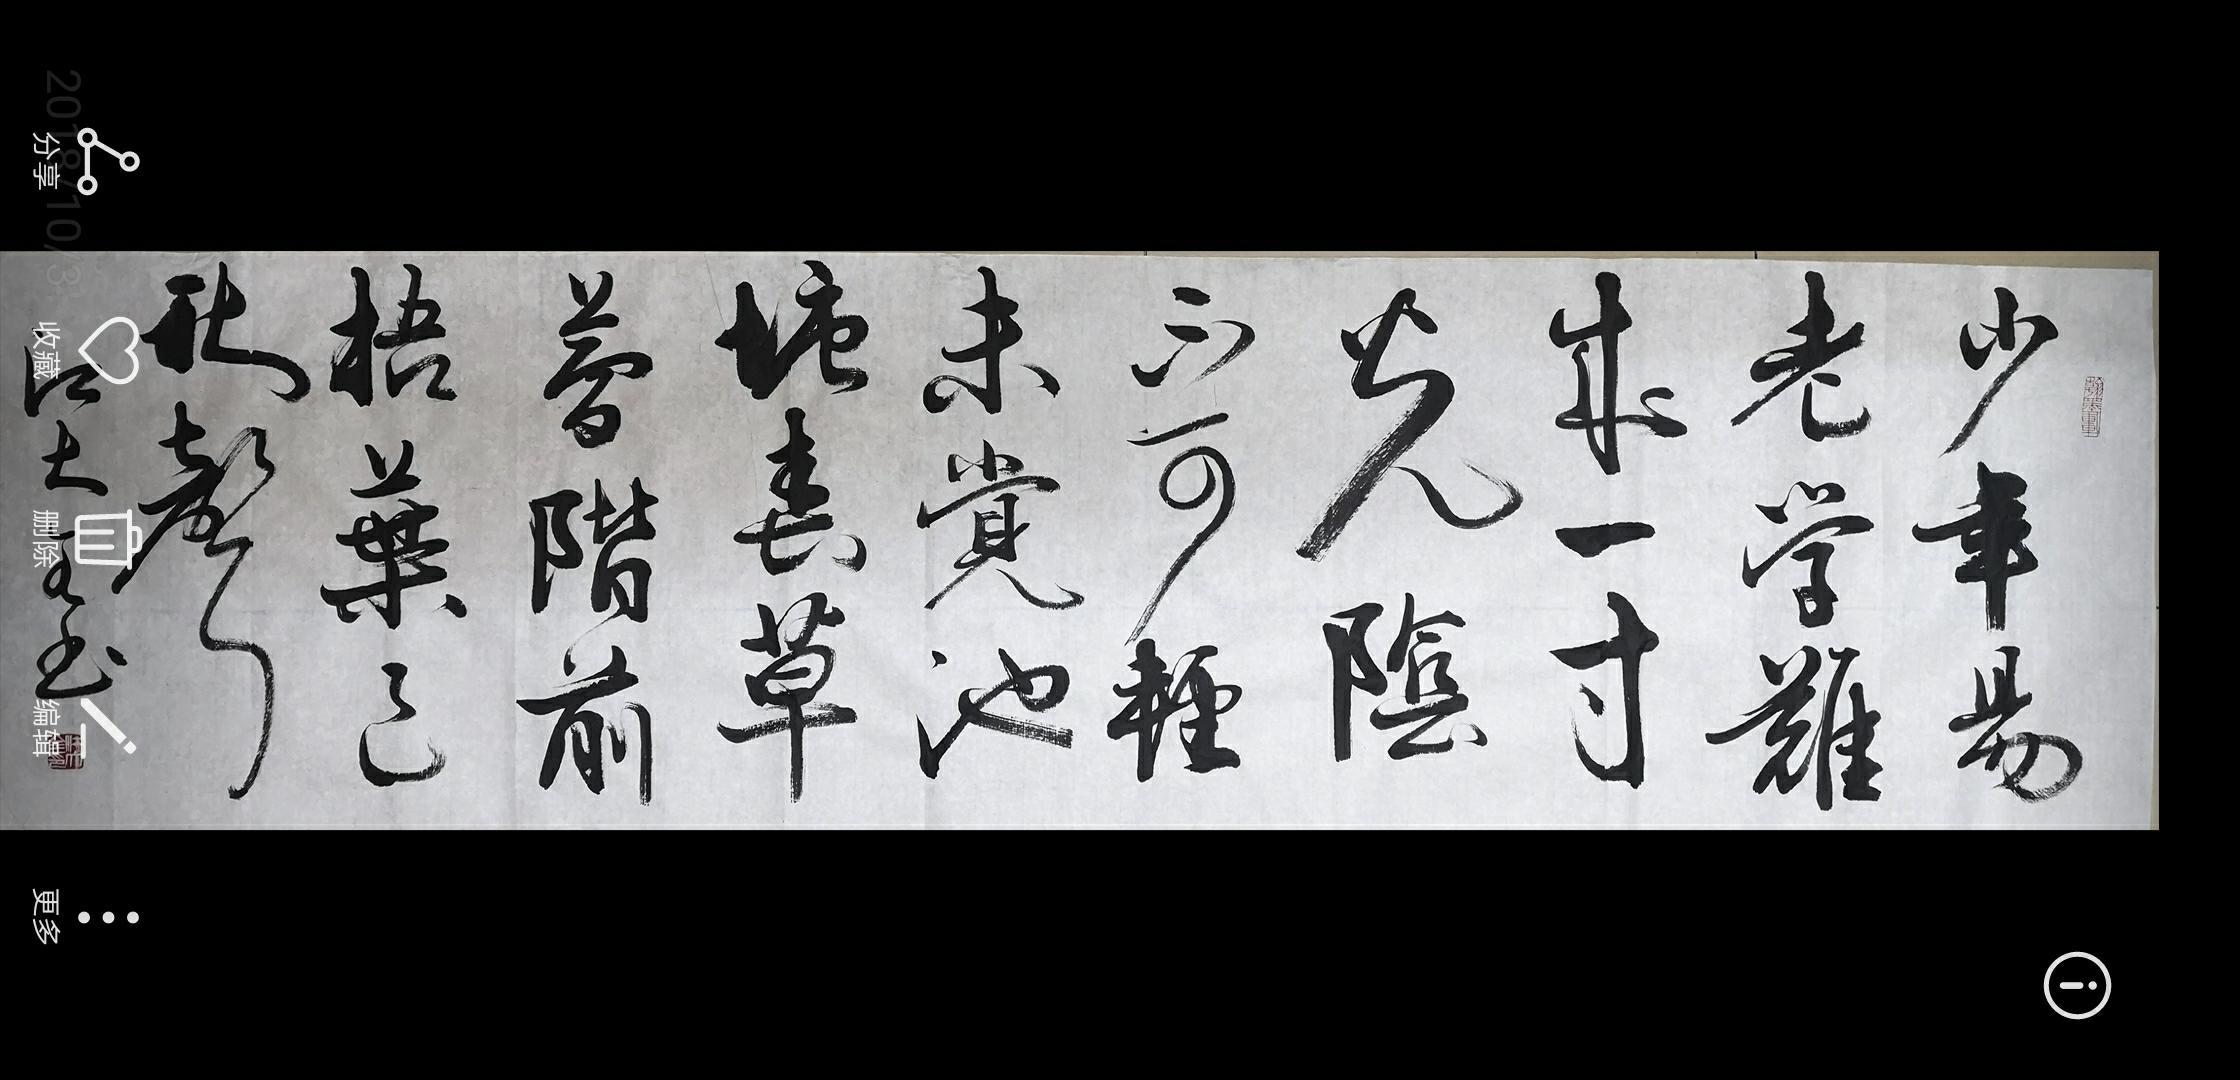 少年易
老学難
成一寸
光陰
不可輕
未覚池
塘春草
夢階前
梧葉已
秋聲
2018/10/3
分享
收藏
删除
编辑
更多